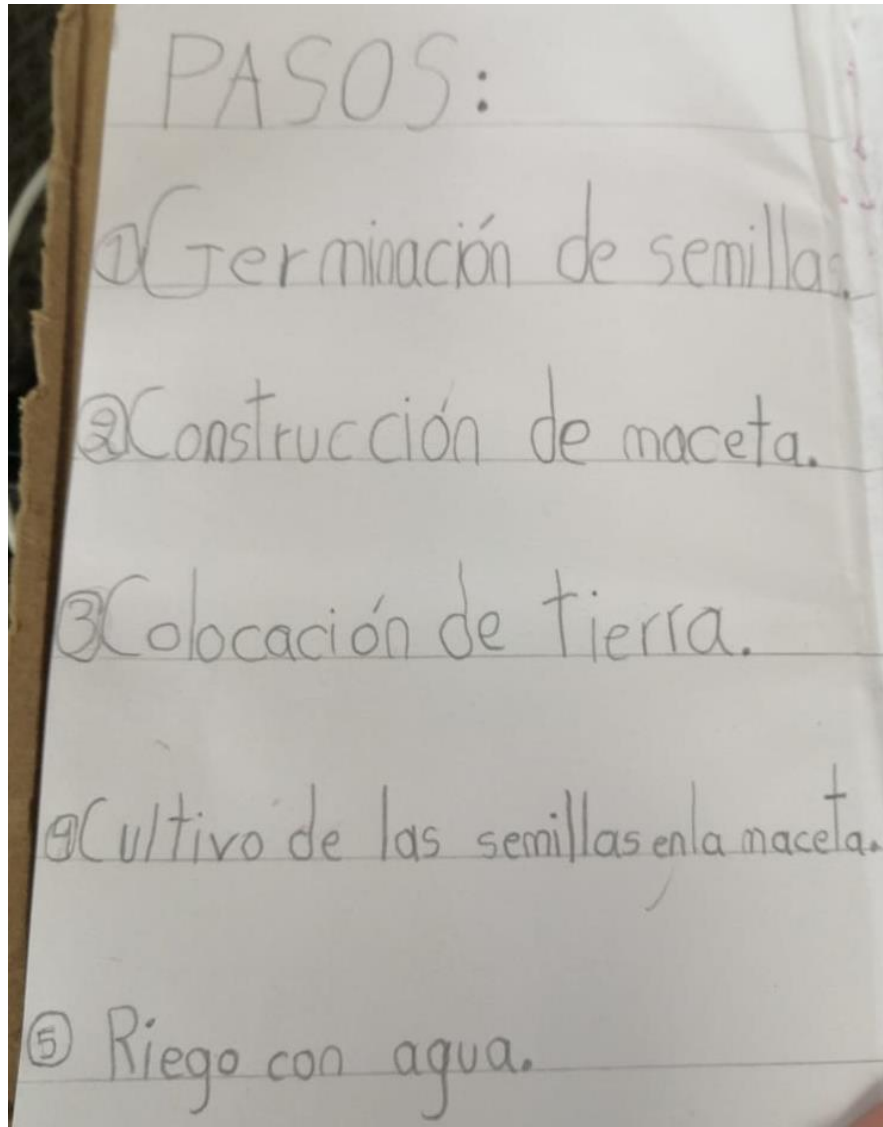 PASOS:
① Germinación de semillas.
② Construcción de maceta.
③ Colocación de tierra.
④ Cultivo de las semillas en la maceta.
⑤ Riego con agua.